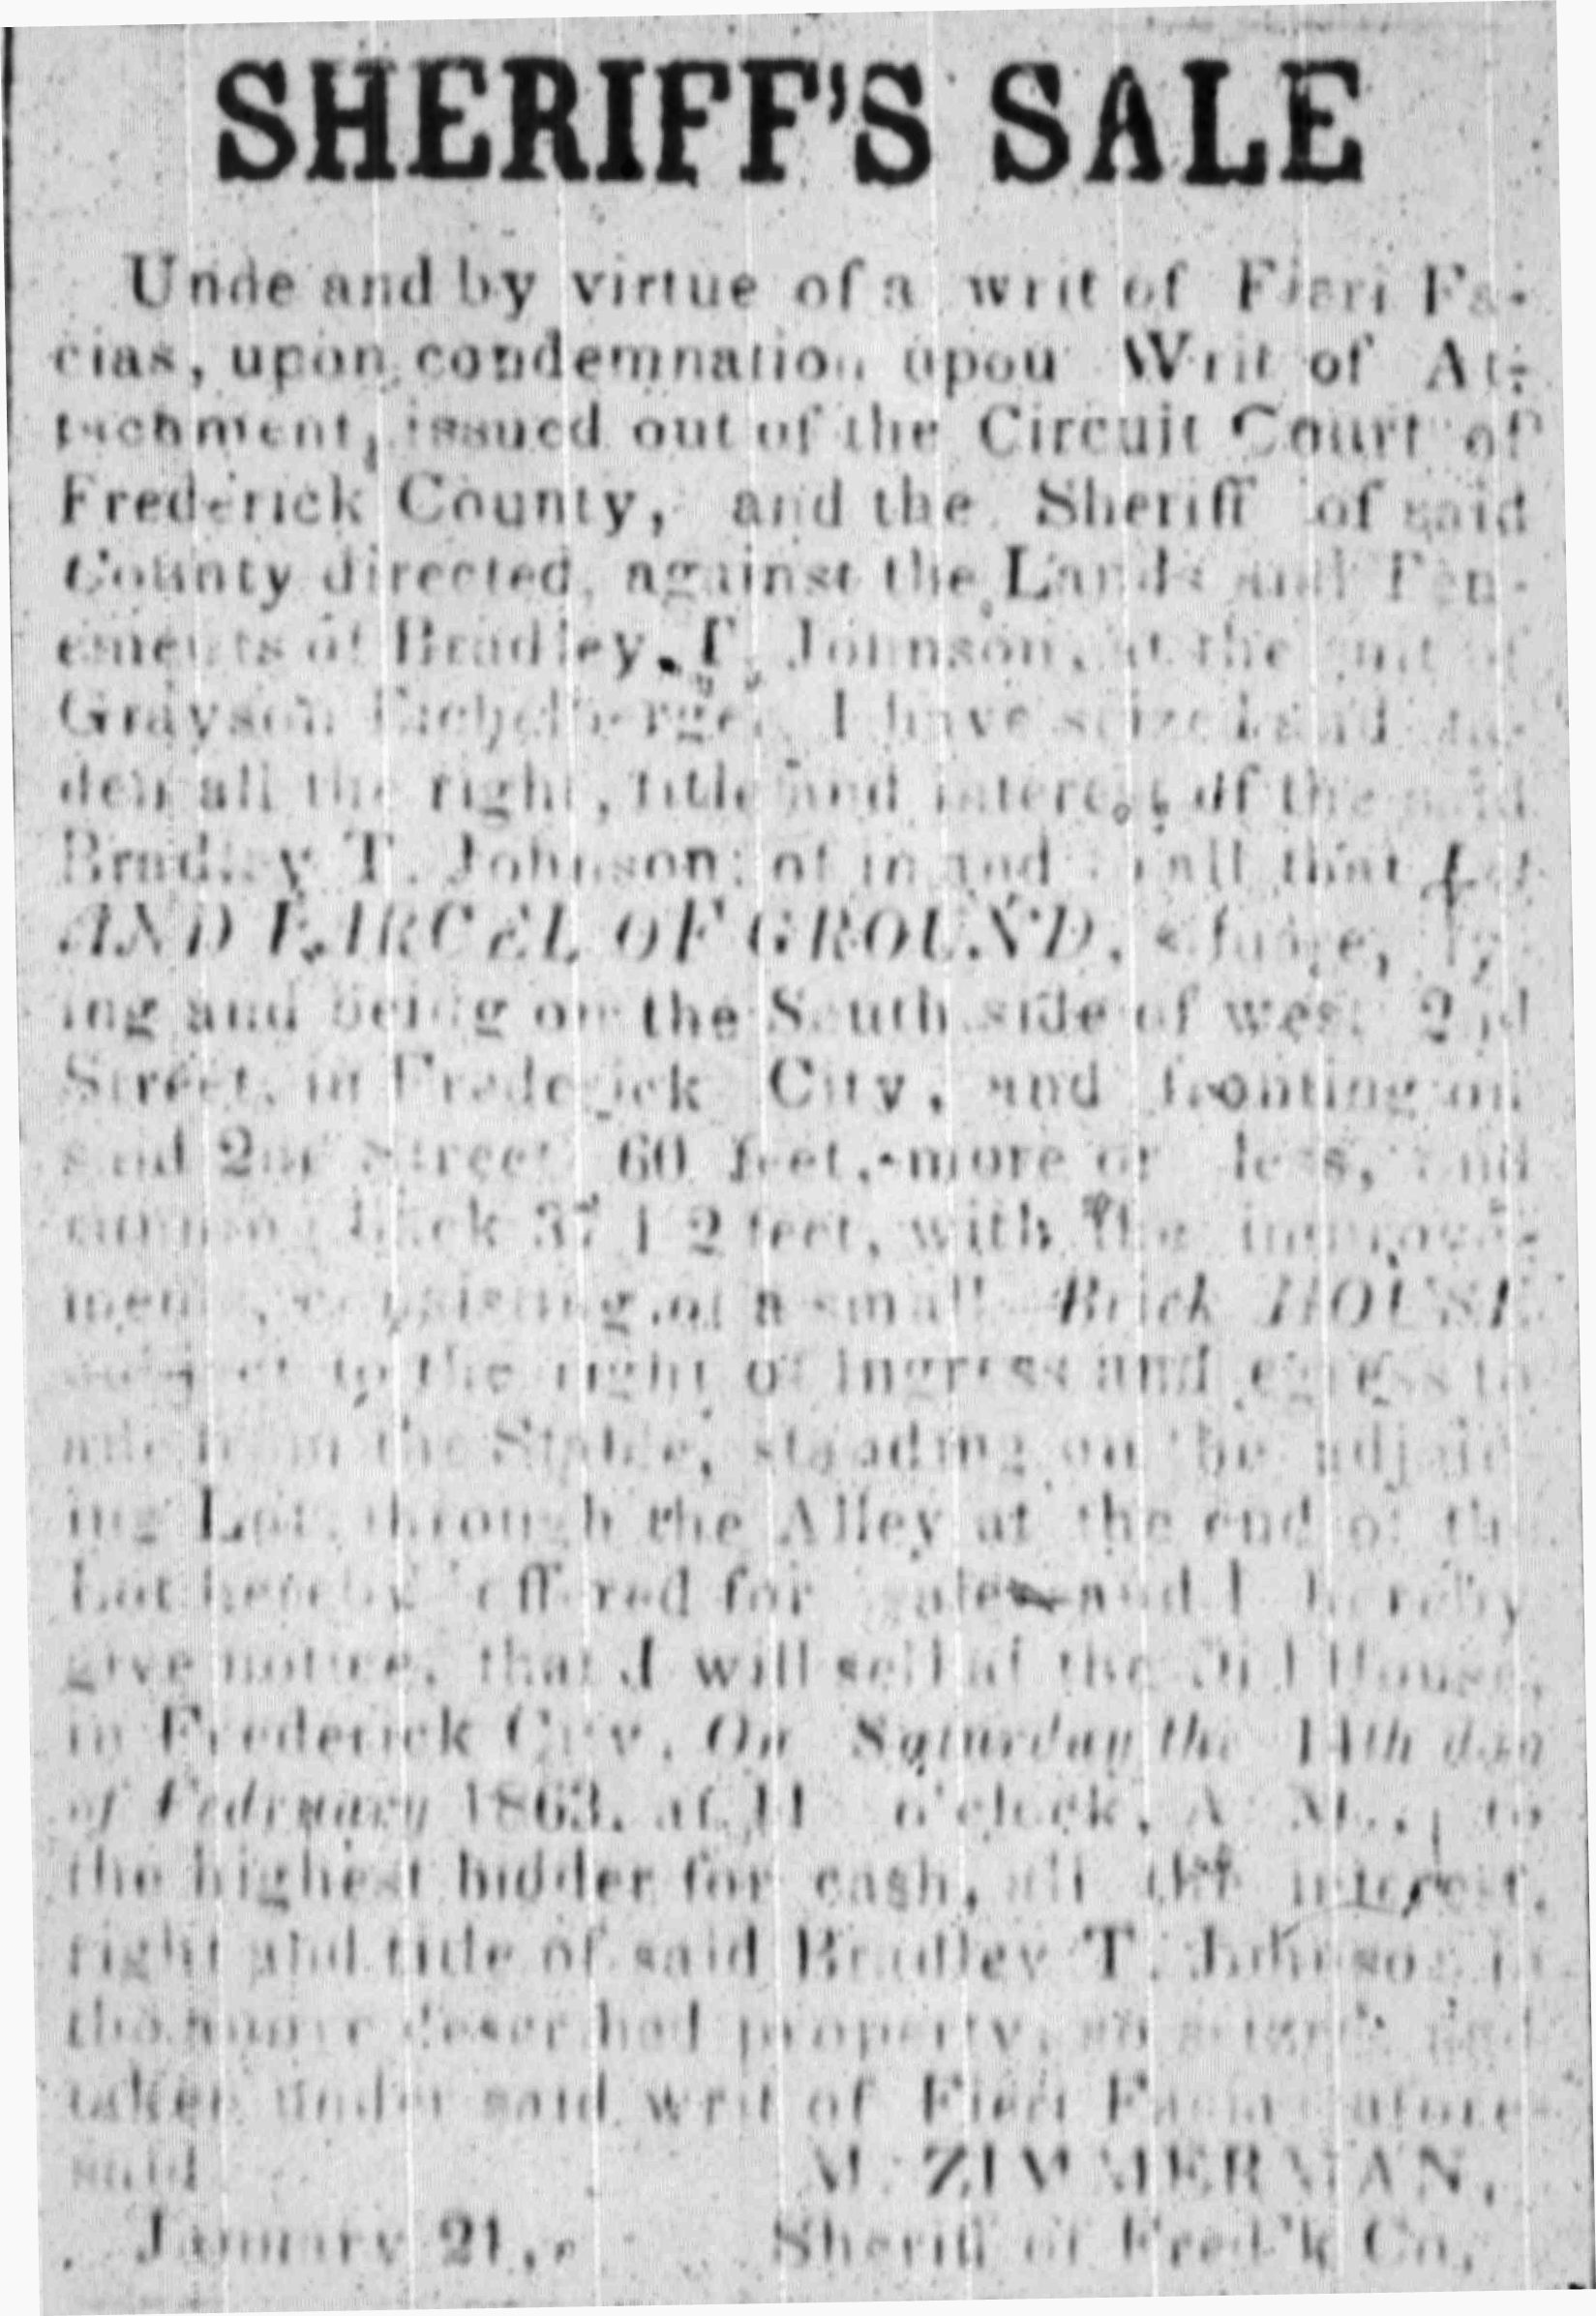 SHERIFF'S SALE
Unde and by virtue of a writ of Fieri Fa-
cias, upon condemnation upou Writ of At-
tachment, issued out of the Circuit Court of
Frederick County, and the Sheriff of said
County directed, against the Lands and Ten-
ements of Bradley T. Johnson, at the suit of
Grayson Eichelberger, I have seized and
all the right, title and interest of the said
Bradley T. Johnson, of in and to all that Lot
AND PARCEL OF GROUND, situate, ly-
ing and being on the South side of west 2nd
Street, in Frederick City, and fronting on
said 2nd Street 60 feet, more or less, and
running back 37 1 2 feet, with the improve-
ments, consisting of a small Brick HOUSE
subject to the right of ingress and egress to
and from the Stable, standing on the adjoin
ing Lot, through the Alley at the end of the
Lot hereby offered for sale and I hereby
give notice, that I will sell at the House,
in Frederick City, On Saturday the 14th day
of Fedruary 1863, at 11 o'clock, A. M., to
the highest bidder for cash, all the interest,
right and title of said Bradley T. Johnson in
the described property, so seized and
taken under said writ of Fieri Facias afore-
said
M. ZIMMERMAN,
January 21, Sheriff of Fred'k Co,